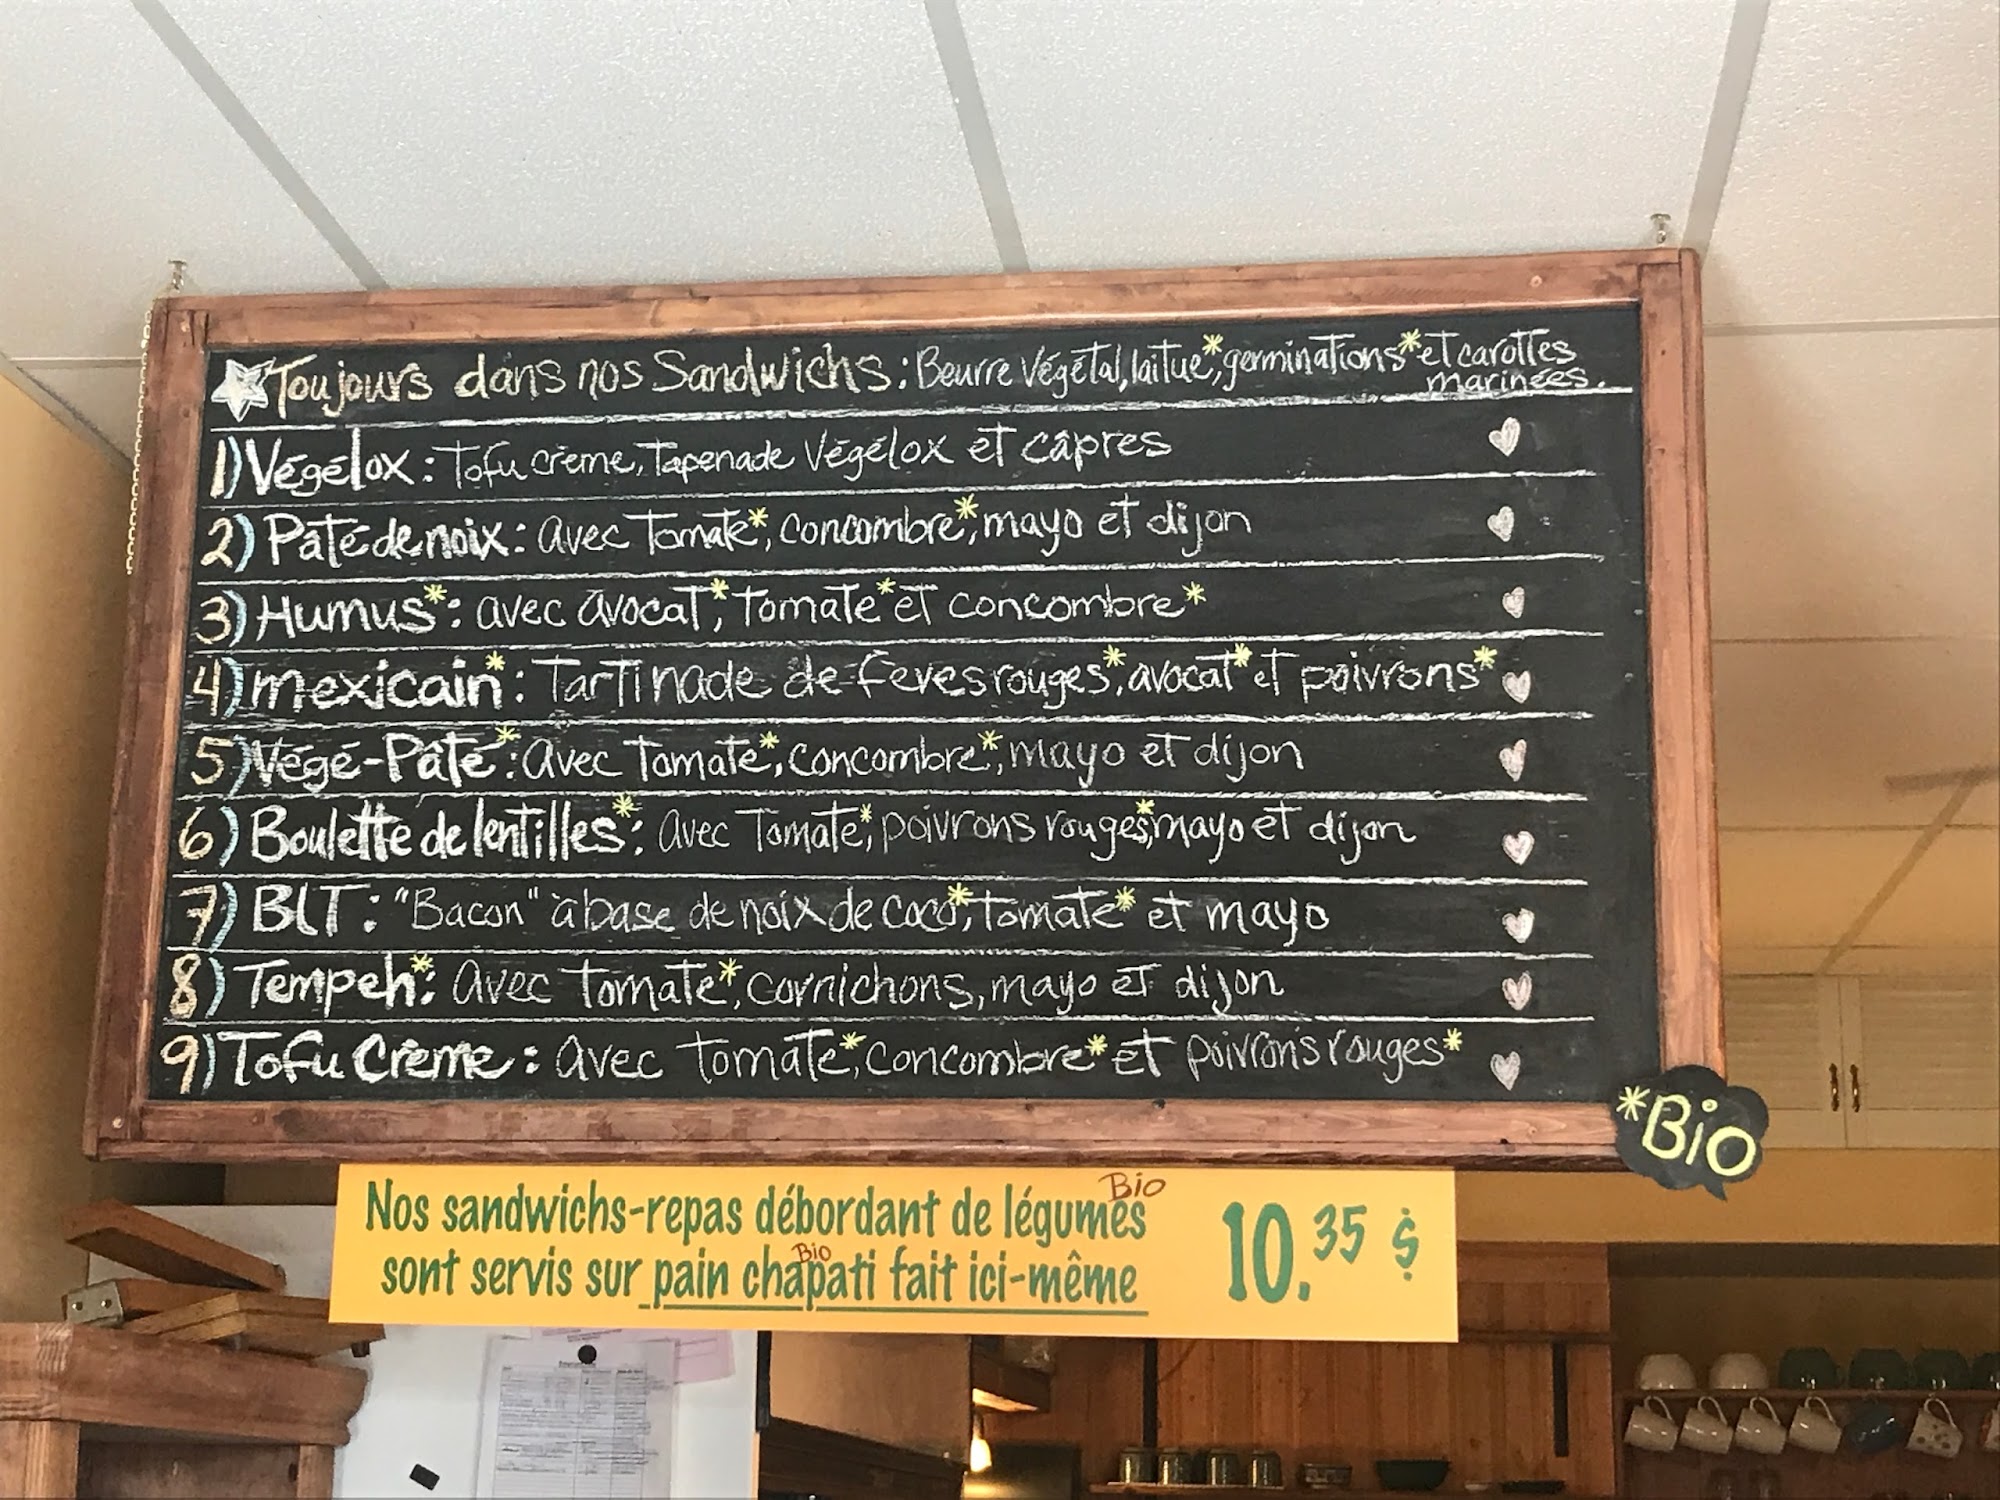 Toujours dans nos Sandwichs : Beurre Végétal, laitue*, germinations* et carottes
marinées.
1) Végélox : Tofu crème, Tapenade Végélox et câpres
2) Pâté de noix : avec Tomate*, concombre*, mayo et dijon
3) Humus* : avec avocat*, Tomate* et concombre*
4) mexicain* : Tartinade de fèves rouges*, avocat* et poivrons*
5) Végé-Pâté* : avec Tomate*, concombre*, mayo et dijon
6) Boulette de lentilles* : avec Tomate*, poivrons rouges*, mayo et dijon
7) BLT : "Bacon" à base de noix de coco*, tomate* et mayo
8) Tempeh* : avec tomate*, cornichons, mayo et dijon
9) Tofu Crème : avec tomate*, concombre* et poivrons rouges*
*Bio
Bio
Nos sandwichs-repas débordant de légumes
Bio
sont servis sur pain chapati fait ici-même
10.35 $